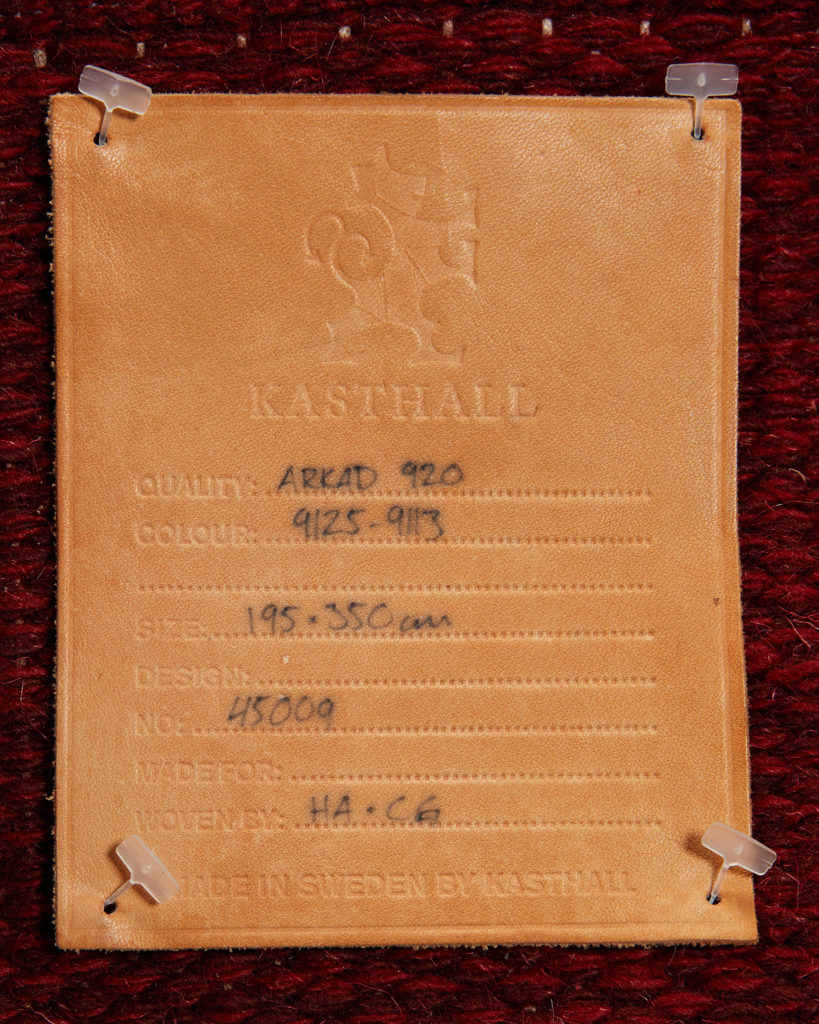 KASTHALL
QUALITY: ARKAD 920
COLOUR: 9125-9113
SIZE: 195·350cm
DESIGN:
NO: 45009
MADE FOR:
WOVEN BY: HA·CG
MADE IN SWEDEN BY KASTHALL